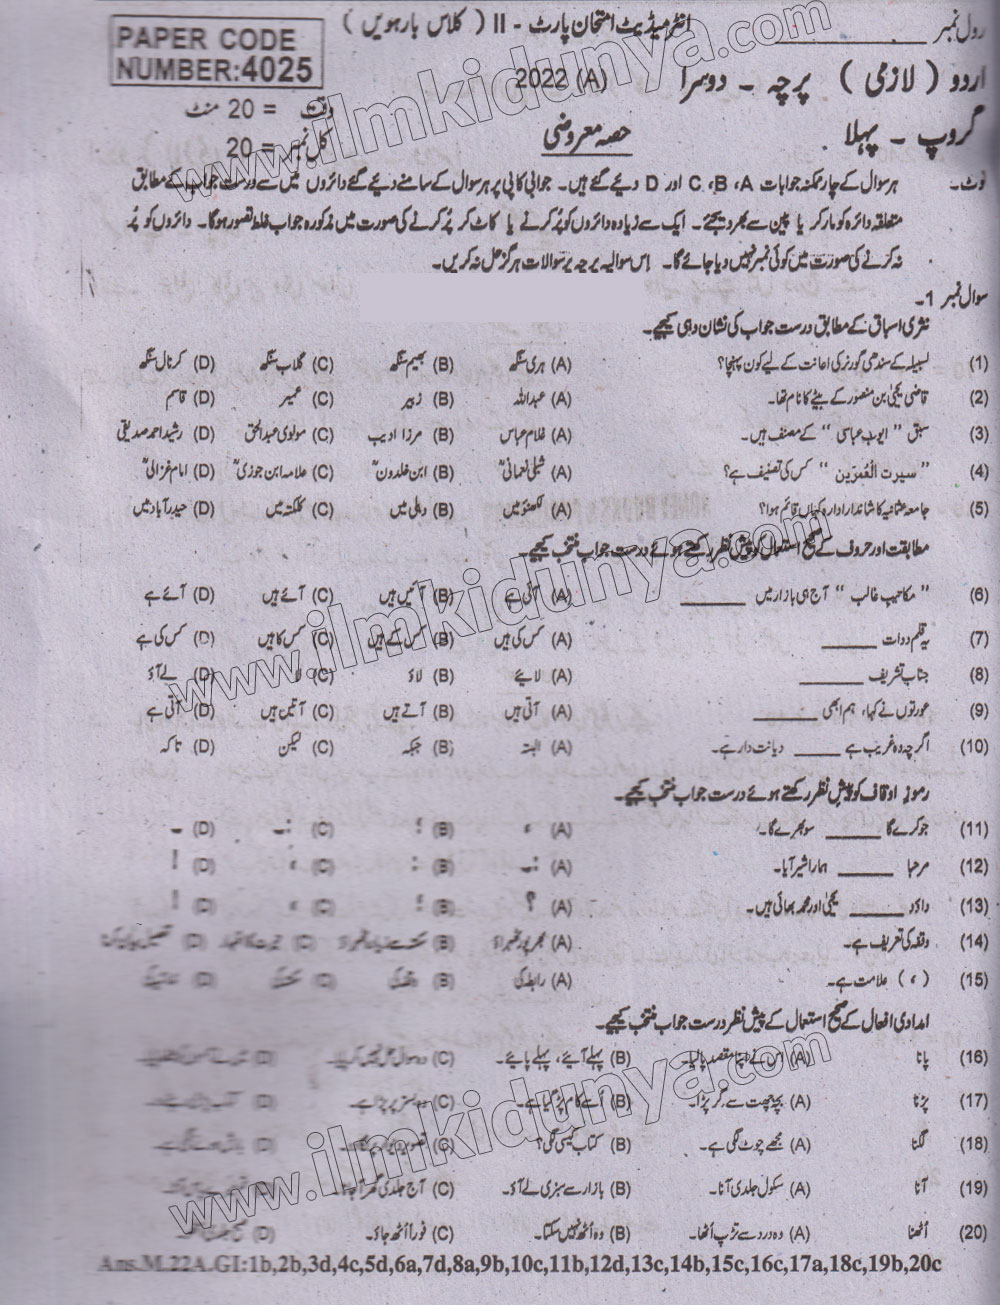 رول نمبر ________ انٹرمیڈیٹ امتحان پارٹ - II ( کلاس بارہویں )
PAPER CODE
NUMBER:4025
اردو ( لازمی ) پرچہ - دوسرا 2022 (A)
وقت = 20 منٹ
گروپ - پہلا حصہ معروضی کل نمبر = 20
نوٹ۔ ہر سوال کے چار ممکنہ جوابات A ،B ،C اور D دیئے گئے ہیں۔ جوابی کاپی پر ہر سوال کے سامنے دیئے گئے دائروں میں سے درست جواب کے مطابق
متعلقہ دائرہ کو مارکر یا پین سے بھر دیجئے۔ ایک سے زیادہ دائروں کو پُر کرنے یا کاٹ کر پُر کرنے کی صورت میں مذکورہ جواب غلط تصور ہوگا۔ دائروں کو پُر
نہ کرنے کی صورت میں کوئی نمبر نہیں دیا جائے گا۔ اِس سوالیہ پرچہ پر سوالات ہرگز حل نہ کریں۔
سوال نمبر 1۔
نثری اسباق کے مطابق درست جواب کی نشان دہی کیجیے۔
(1) لسبیلہ کے سندھی گورنر کی اعانت کے لیے کون پہنچا؟ (A) ہری سنگھ (B) بھیم سنگھ (C) گلاب سنگھ (D) کرنال سنگھ
(2) قاضی یحییٰ بن منصور کے بیٹے کا نام تھا۔ (A) عبداللہ (B) زبیر (C) عمیر (D) قاسم
(3) سبق " ایوب عباسی " کے مصنف ہیں۔ (A) غلام عباس (B) مرزا ادیب (C) مولوی عبدالحق (D) رشید احمد صدیقی
(4) " سیرت العُمرَین " کس کی تصنیف ہے؟ (A) شبلی نعمانیؒ (B) ابن خلدونؒ (C) علامہ ابن جوزیؒ (D) امام غزالیؒ
(5) جامعہ عثمانیہ کا شاندار ادارہ کہاں قائم ہوا؟ (A) لکھنؤ میں (B) دہلی میں (C) کلکتہ میں (D) حیدر آباد میں
مطابقت اور حروف کے صحیح استعمال کو پیش نظر رکھتے ہوئے درست جواب منتخب کیجیے۔
(6) " مکاتیب غالب " آج ہی بازار میں ________ (A) آئی ہے (B) آئیں ہیں (C) آئے ہیں (D) آئے ہے
(7) یہ قلم دوات ________ (A) کس کی ہیں (B) کس کے ہیں (C) کس کا ہیں (D) کس کی ہے
(8) جناب تشریف ________ (A) لایئے (B) لاؤ (C) لا (D) لے آؤ
(9) عورتوں نے کہا، ہم ابھی ________ (A) آتی ہیں (B) آتے ہیں (C) آتیں ہیں (D) آتی ہے
(10) اگرچہ وہ غریب ہے ________ دیانت دار ہے۔ (A) البتہ (B) جبکہ (C) لیکن (D) تاکہ
رموزِ اوقاف کو پیش نظر رکھتے ہوئے درست جواب منتخب کیجیے۔
(11) جو کرے گا ________ سو بھرے گا۔ (A) ، (B) ؛ (C) :۔ (D) ۔
(12) مرحبا ________ ہمارا شیر آیا۔ (A) :۔ (B) : (C) ، (D) !
(13) داؤد ________ یحییٰ اور محمد بھائی ہیں۔ (A) ؟ (B) ؛ (C) ، (D) !
(14) وقفہ کی تعریف ہے۔ (A) بھرپور ٹھہراؤ (B) سکتے سے زیادہ ٹھہراؤ (C) حیرت کا اظہار (D) تفصیل بیان کرنا
(15) ( ، ) علامت ہے۔ (A) رابطہ کی (B) وقفہ کی (C) سکتہ کی (D)
امدادی افعال کے صحیح استعمال کے پیش نظر درست جواب منتخب کیجیے۔
(16) پانا (A) اس نے اپنا مقصد پا لیا۔ (B) پہلے آیئے، پہلے پایئے۔ (C) وہ سوال حل نہیں کر پایا۔ (D)
(17) پڑنا (A) بچہ چھت سے گر پڑا۔ (B) اُسے کام پڑ گیا ہے۔ (C) وہ بستر پر پڑا ہے۔ (D)
(18) لگنا (A) مجھے چوٹ لگی ہے۔ (B) کتاب کیسی لگی؟ (C) تصویر دیوار پر لگاؤ۔ (D)
(19) آنا (A) سکول جلدی آنا۔ (B) بازار سے سبزی لے آؤ۔ (C) آج جلدی گھر آ جانا۔ (D)
(20) اُٹھنا (A) وہ درد سے تڑپ اُٹھا۔ (B) وہ اُٹھ نہیں سکتا۔ (C) فوراً اُٹھ جاؤ۔ (D)
Ans.M.22A.GI:1b,2b,3d,4c,5d,6a,7d,8a,9b,10c,11b,12d,13c,14b,15c,16c,17a,18c,19b,20c
www.ilmkidunya.com
www.ilmkidunya.com
www.ilmkidunya.com